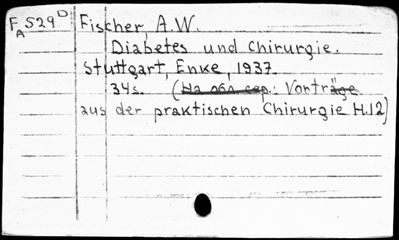 F A 529 D Fischer, A.W.
Diabetes und Chirurgie.
Stuttgart, Enke, 1937.
34s. (На обл. сер.: Vorträge
aus der praktischen Chirurgie H.12)